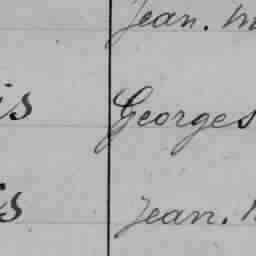 Jean.
is Georges
is Jean.